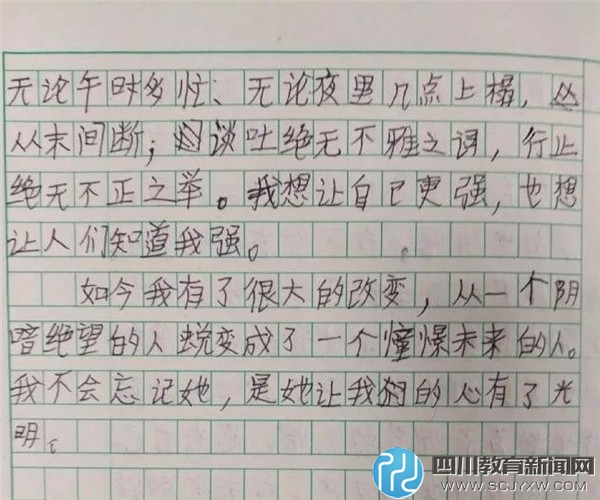 无论午时多忙、无论夜里几点上榻，
从未间断；谈吐绝无不雅之词，行止
绝无不正之举。我想让自己更强，也想
让人们知道我强。
如今我有了很大的改变，从一个阴
暗绝望的人蜕变成了一个憧憬未来的人。
我不会忘记她，是她让我的心有了光
明。
四川教育新闻网
WWW.SCJYXW.COM